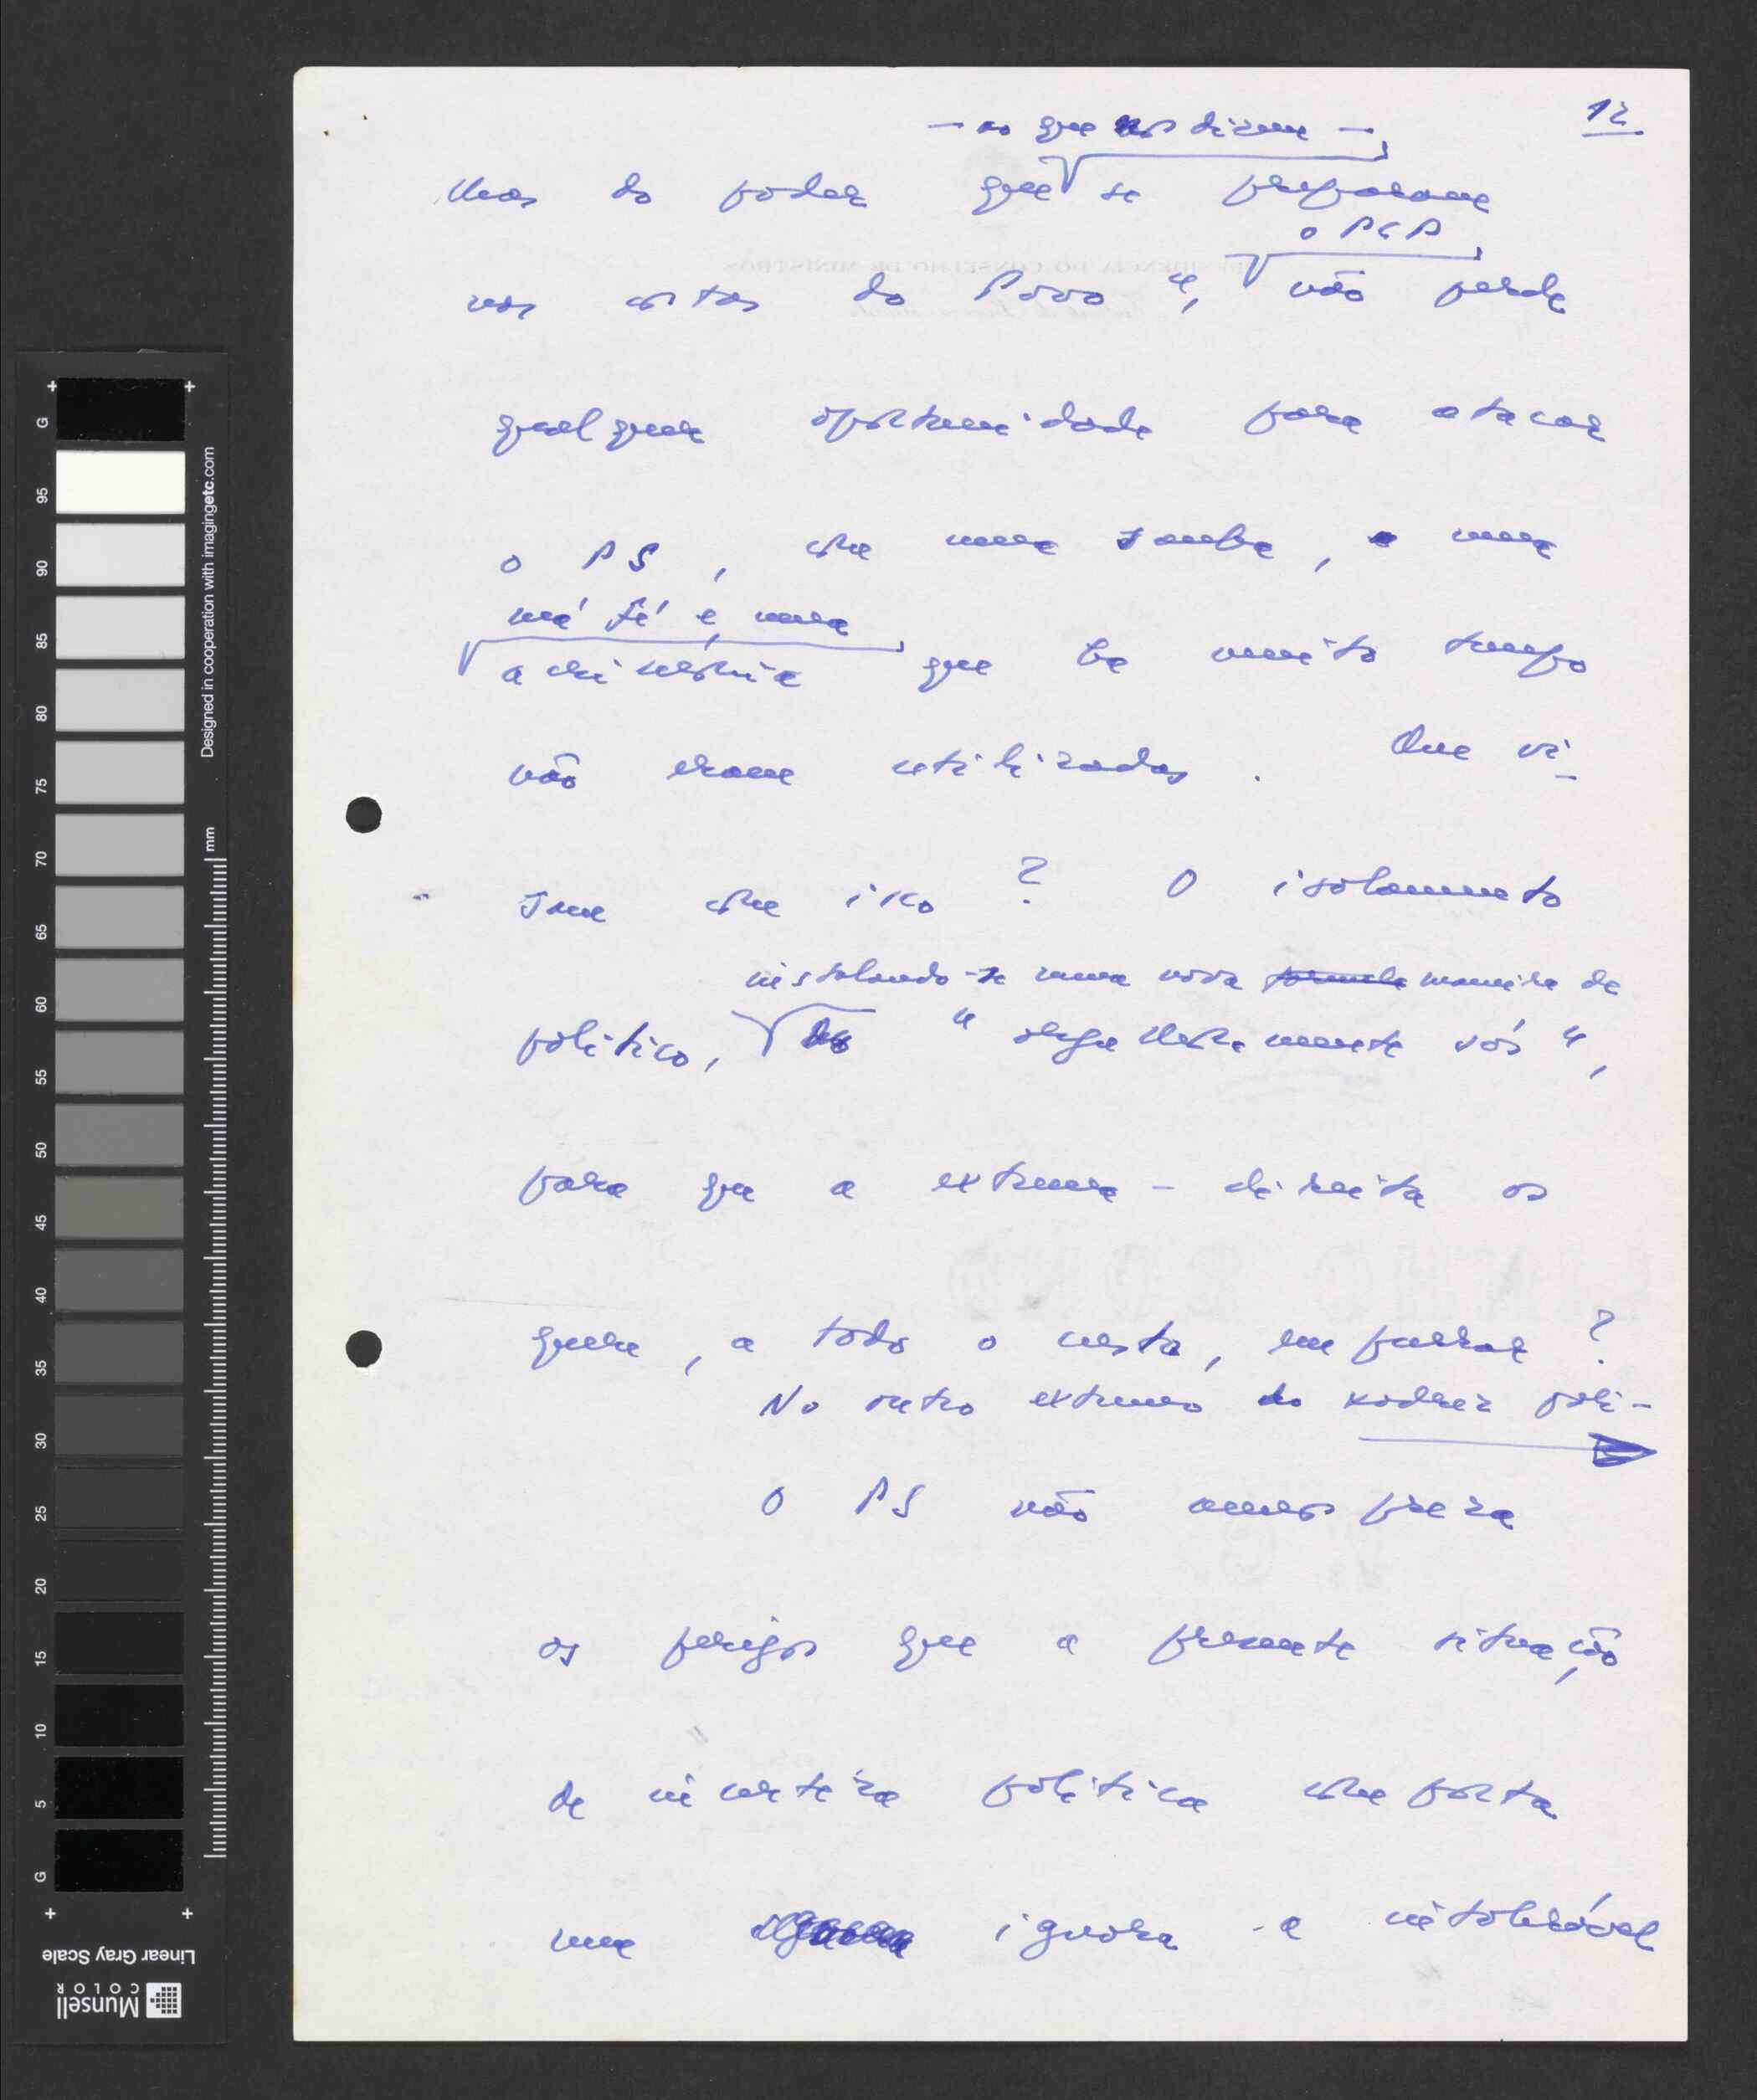 12
— ao que nos dizem —
do poder que se preparam
o PCP
nas costas do Povo", não perde
qualquer oportunidade para atacar
o PS, com uma sanha, uma
má fé e, uma
que há muito tempo
não eram utilizadas. Que vi-
sam com isso? O isolamento
instalando-se numa nova maneira de
político, do "orgulhosamente sós",
para que a extrema-direita os
quere, a todo o custo, empurrar?
No outro extremo do xadrez polí-
O PS não menospreza
os perigos que a presente situação
de incerteza política comporta
nem ignora a intolerável
PRESIDÊNCIA DO CONSELHO DE MINISTROS
Designed in cooperation with imagingetc.com
mm
G 95 90 85 80 75 70 65 60 55 50 45 40 35 30 25 20 15 10 5 G
Linear Gray Scale
Munsell
COLOR